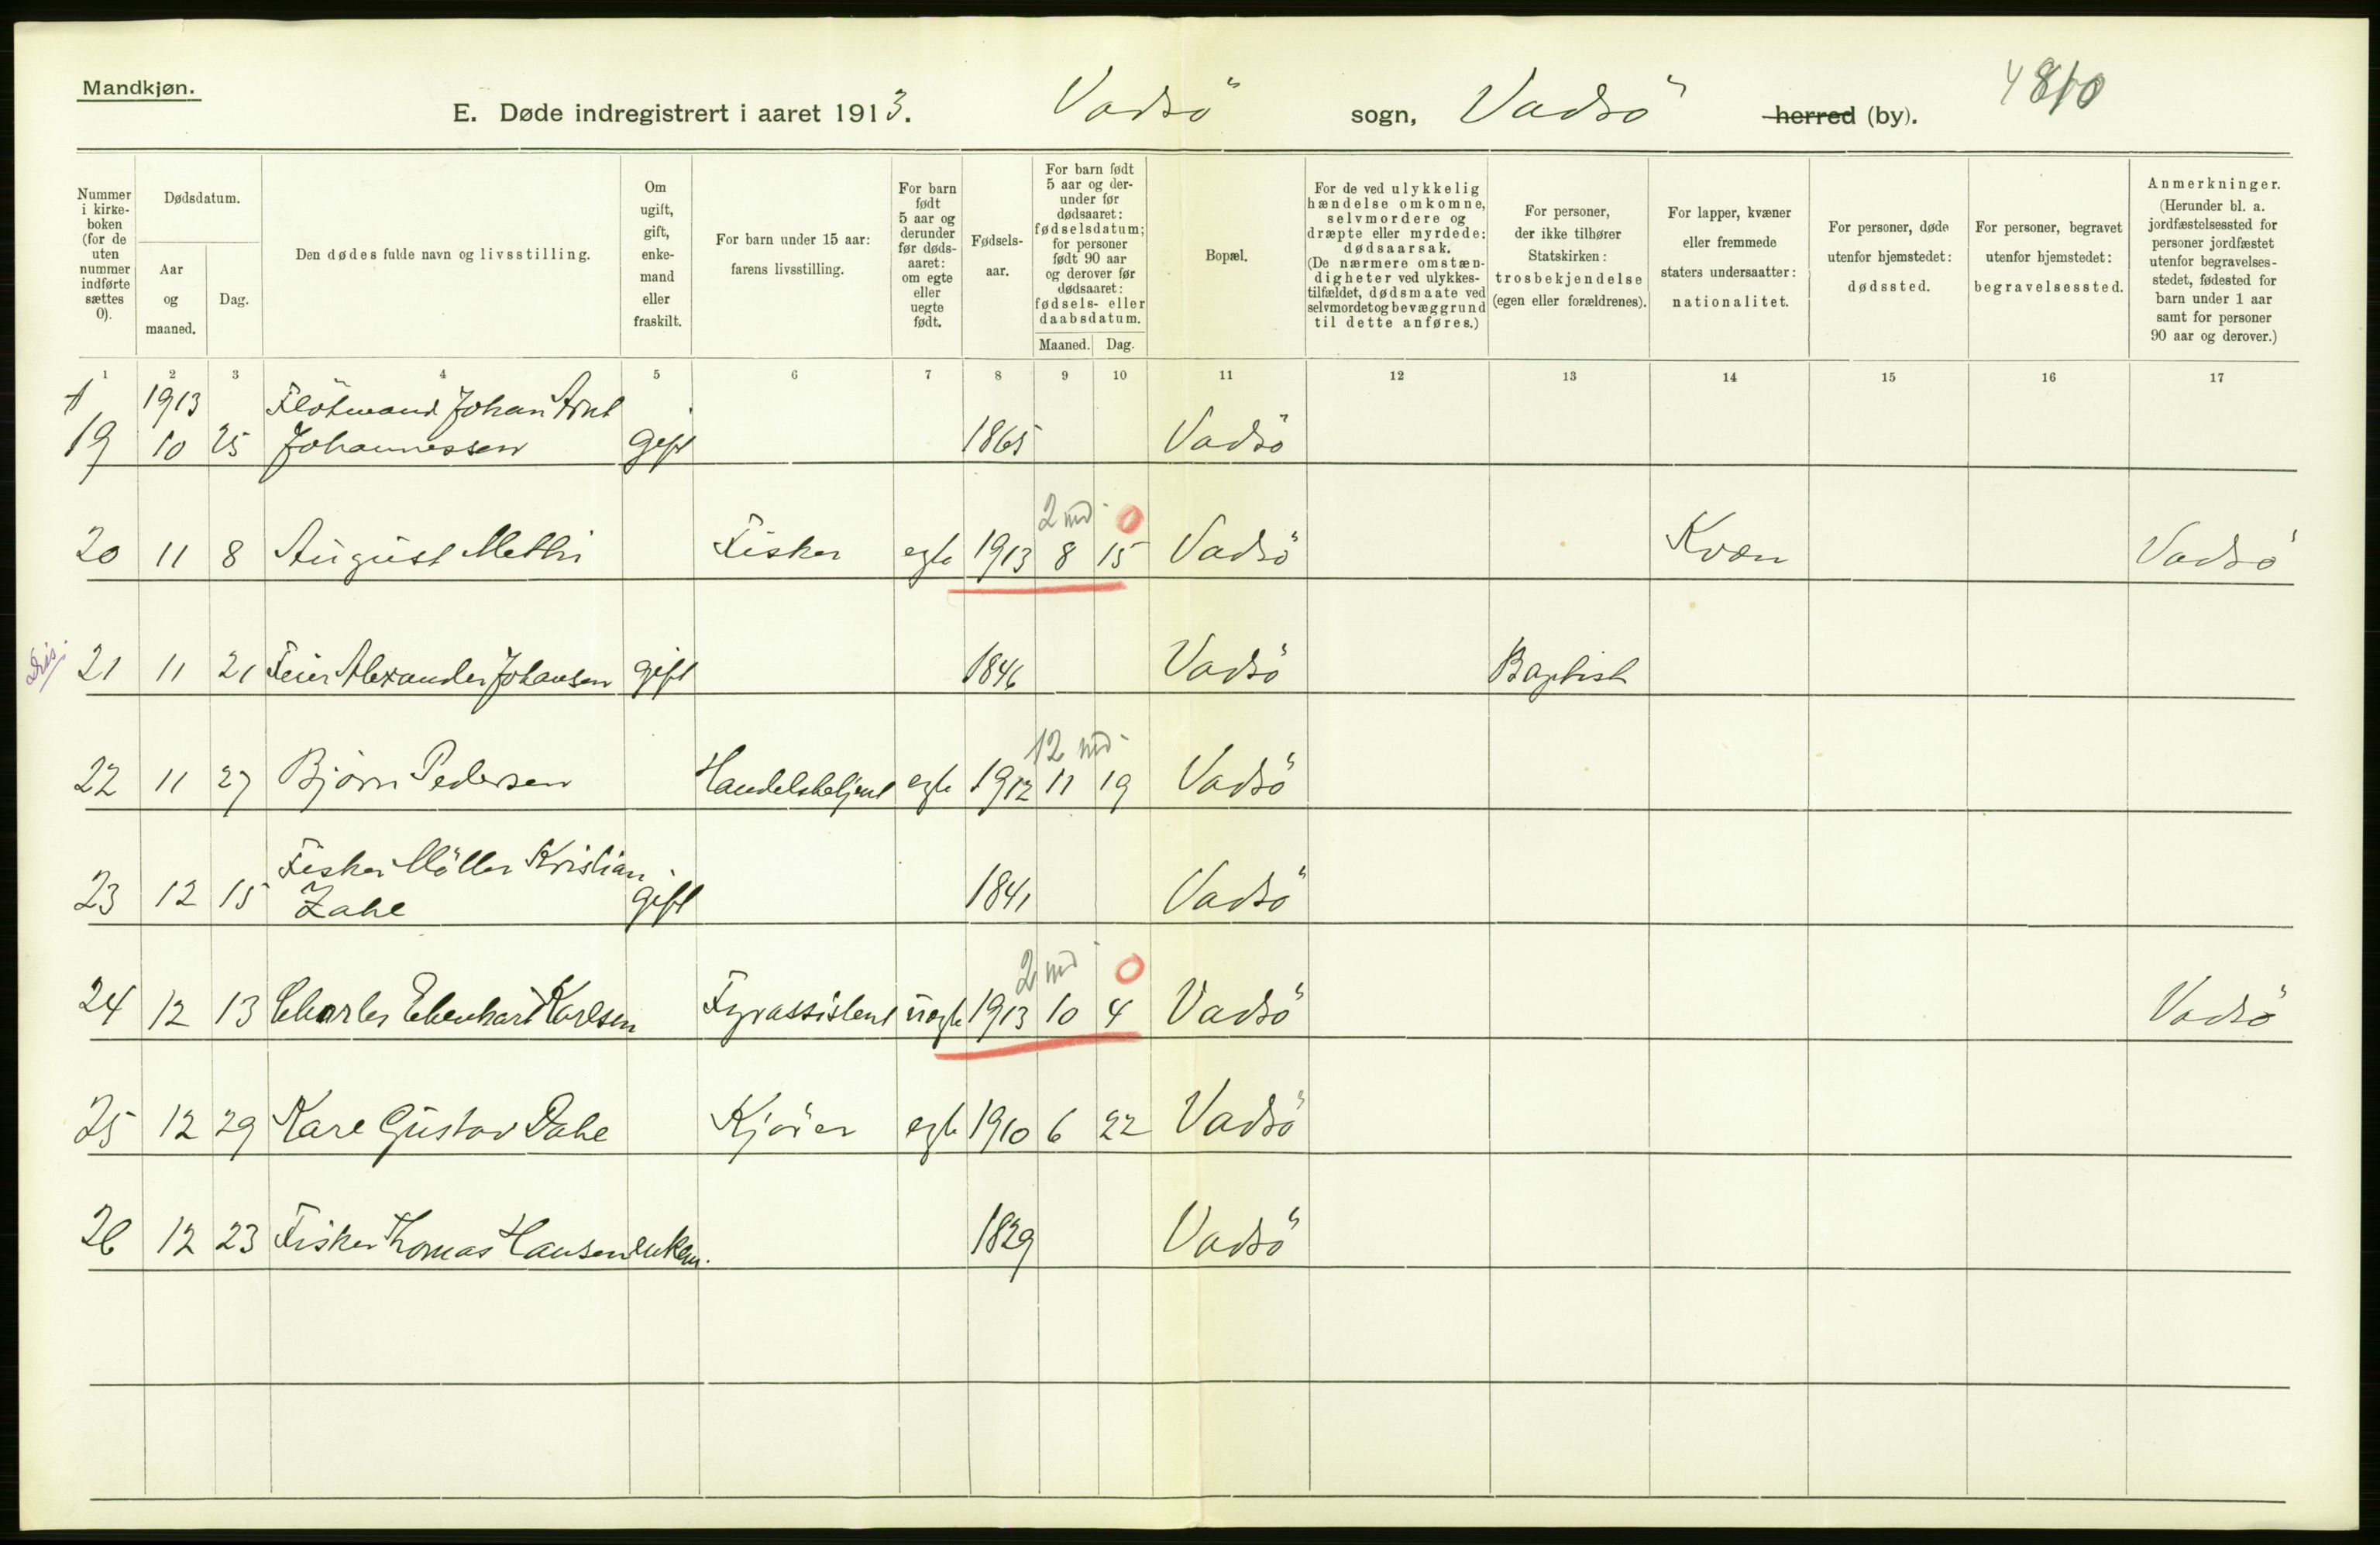 Mandkjøn.
E. Døde indregistrert i aaret 1913. Vadsö sogn, Vadsö herred (by).
Nummer i kirke-boken (for de uten nummer indførte sættes 0).
Dødsdatum.
Aar og maaned.
Dag.
Den dødes fulde navn og livsstilling.
Om ugift, gift, enke-mand eller fraskilt.
For barn under 15 aar: farens livsstilling.
For barn født 5 aar og derunder før døds-aaret: om egte eller uegte født.
Fødsels-aar.
For barn født 5 aar og der-under før dødsaaret: fødselsdatum; for personer født 90 aar og derover før dødsaaret: fødsels- eller daabsdatum.
Maaned. Dag.
Bopæl.
For de ved ulykkelig hændelse omkomne, selvmordere og dræpte eller myrdede: dødsaarsak. (De nærmere omstæn-digheter ved ulykkes-tilfældet, dødsmaate ved selvmordet og bevæggrund til dette anføres.)
For personer, der ikke tilhører Statskirken: trosbekjendelse (egen eller forældrenes).
For lapper, kvæner eller fremmede staters undersaatter: nationalitet.
For personer, døde utenfor hjemstedet: dødssted.
For personer, begravet utenfor hjemstedet: begravelsessted.
Anmerkninger. (Herunder bl. a. jordfæstelsessted for personer jordfæstet utenfor begravelses-stedet, fødested for barn under 1 aar samt for personer 90 aar og derover.)
1 2 3 4 5 6 7 8 9 10 11 12 13 14 15 16 17
1913 Flötmand Johan Arnt
19 10 25 Johannessen gift 1865 Vadsö
2 md. 0
20 11 8 August Mathi Fisker egte 1913 8 15 Vadsö Kvæn Vadsö
Dis.
21 11 21 Feier Alexander Johansen gift 1846 Vadsö Baptist
12 md.
22 11 27 Björn Pedersen Handelsbetjent egte 1912 11 19 Vadsö
Fisker Möller Kristian
23 12 15 Zahl gift 1841 Vadsö
2 md 0
24 12 13 Charles Ebenhart Karlsen Fyrassistent üegte 1913 10 4 Vadsö Vadsö
25 12 29 Kare Gustav Dahl Kjörer egte 1910 6 22 Vadsö
26 12 23 Fisker Thomas Hansen enkem. 1829 Vadsö